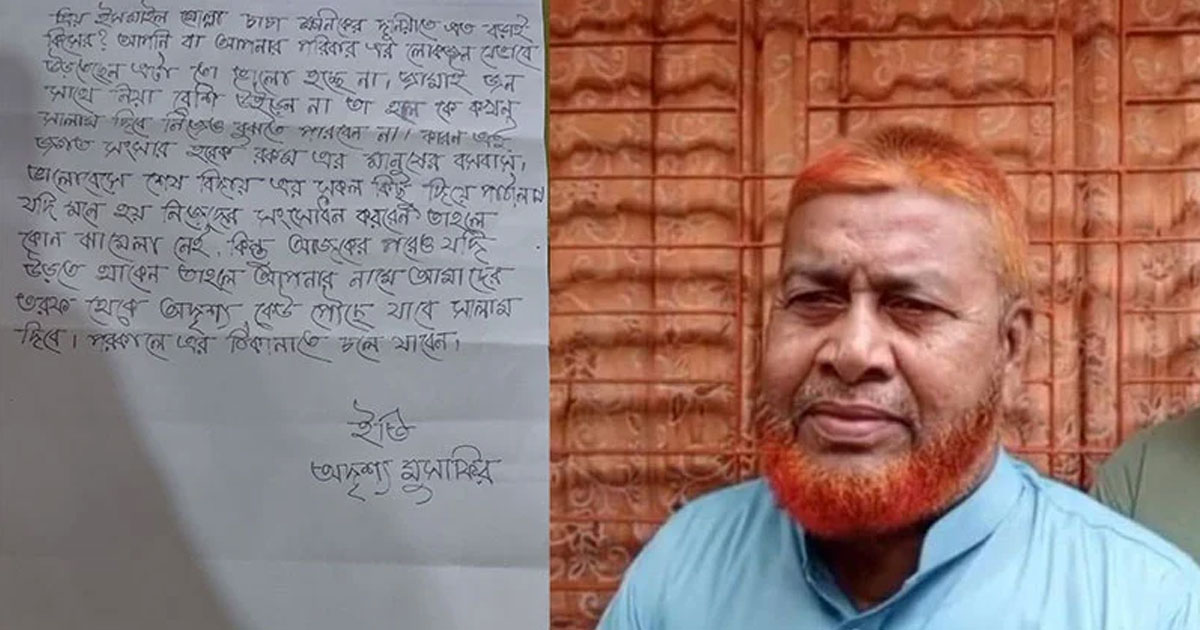 প্রিয় ইসমাইল মোল্লা চাচা ক্ষনীকের দুনীয়াতে এত বড়াই
কিসের? আপনি বা আপনার পরিবার এর লোকজন যেভাবে
উড়তেছেন এটা তো ভালো হচ্ছে না, জামাই জন
সাথে নিয়া বেশি উইড়েন না তা হলে কে কখন
সালাম দিবে নিজেও বুঝতে পারবেন না। কারন এই
জগত সংসার হরেক রকম এর মানুষের বসবাস,
ভালোবেসে শেষ বিদায় এর সকল কিছু দিয়ে পাঠালাম
যদি মনে হয় নিজেদের সংসোধন করবেন তাহলে
কোন ঝামেলা নেই, কিন্তু আজকের পরেও যদি
উড়তে থাকেন তাহলে আপনার নামে আমাদের
তরফ থেকে অদৃশ্য কেউ পৌছে যাবে সালাম
দিবে। পরকালে এর ঠিকানাতে চলে যাবেন।
ইতি
অদৃশ্য মুসাফির